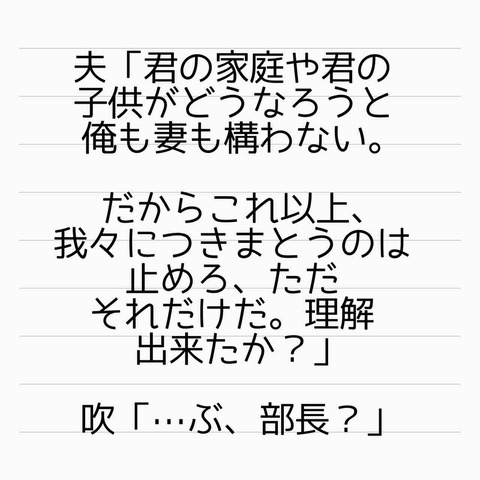 夫「君の家庭や君の
子供がどうなろうと
俺も妻も構わない。
だからこれ以上、
我々につきまとうのは
止めろ、ただ
それだけだ。理解
出来たか？」
吹「…ぶ、部長？」